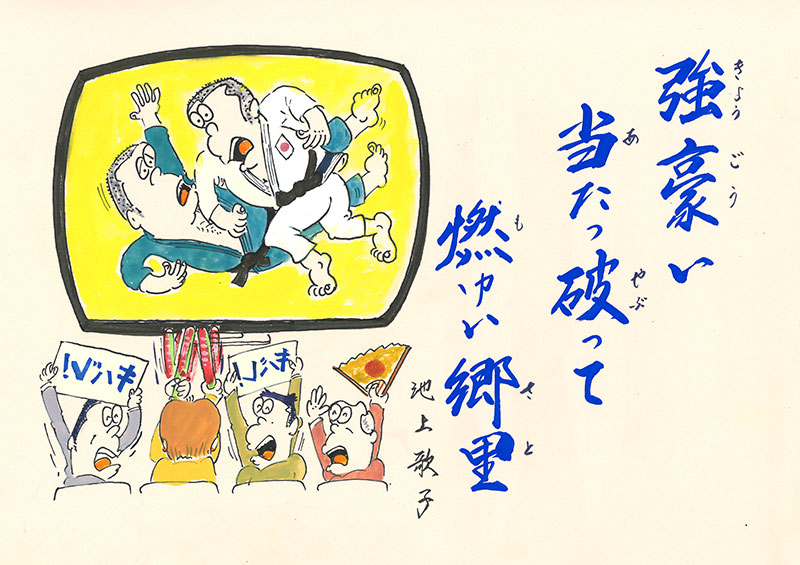 きょうごう
強豪い
あ やぶ
当たっ破って
も さと
燃ゆい郷里
池上歌子
キバレ!
キバレ!